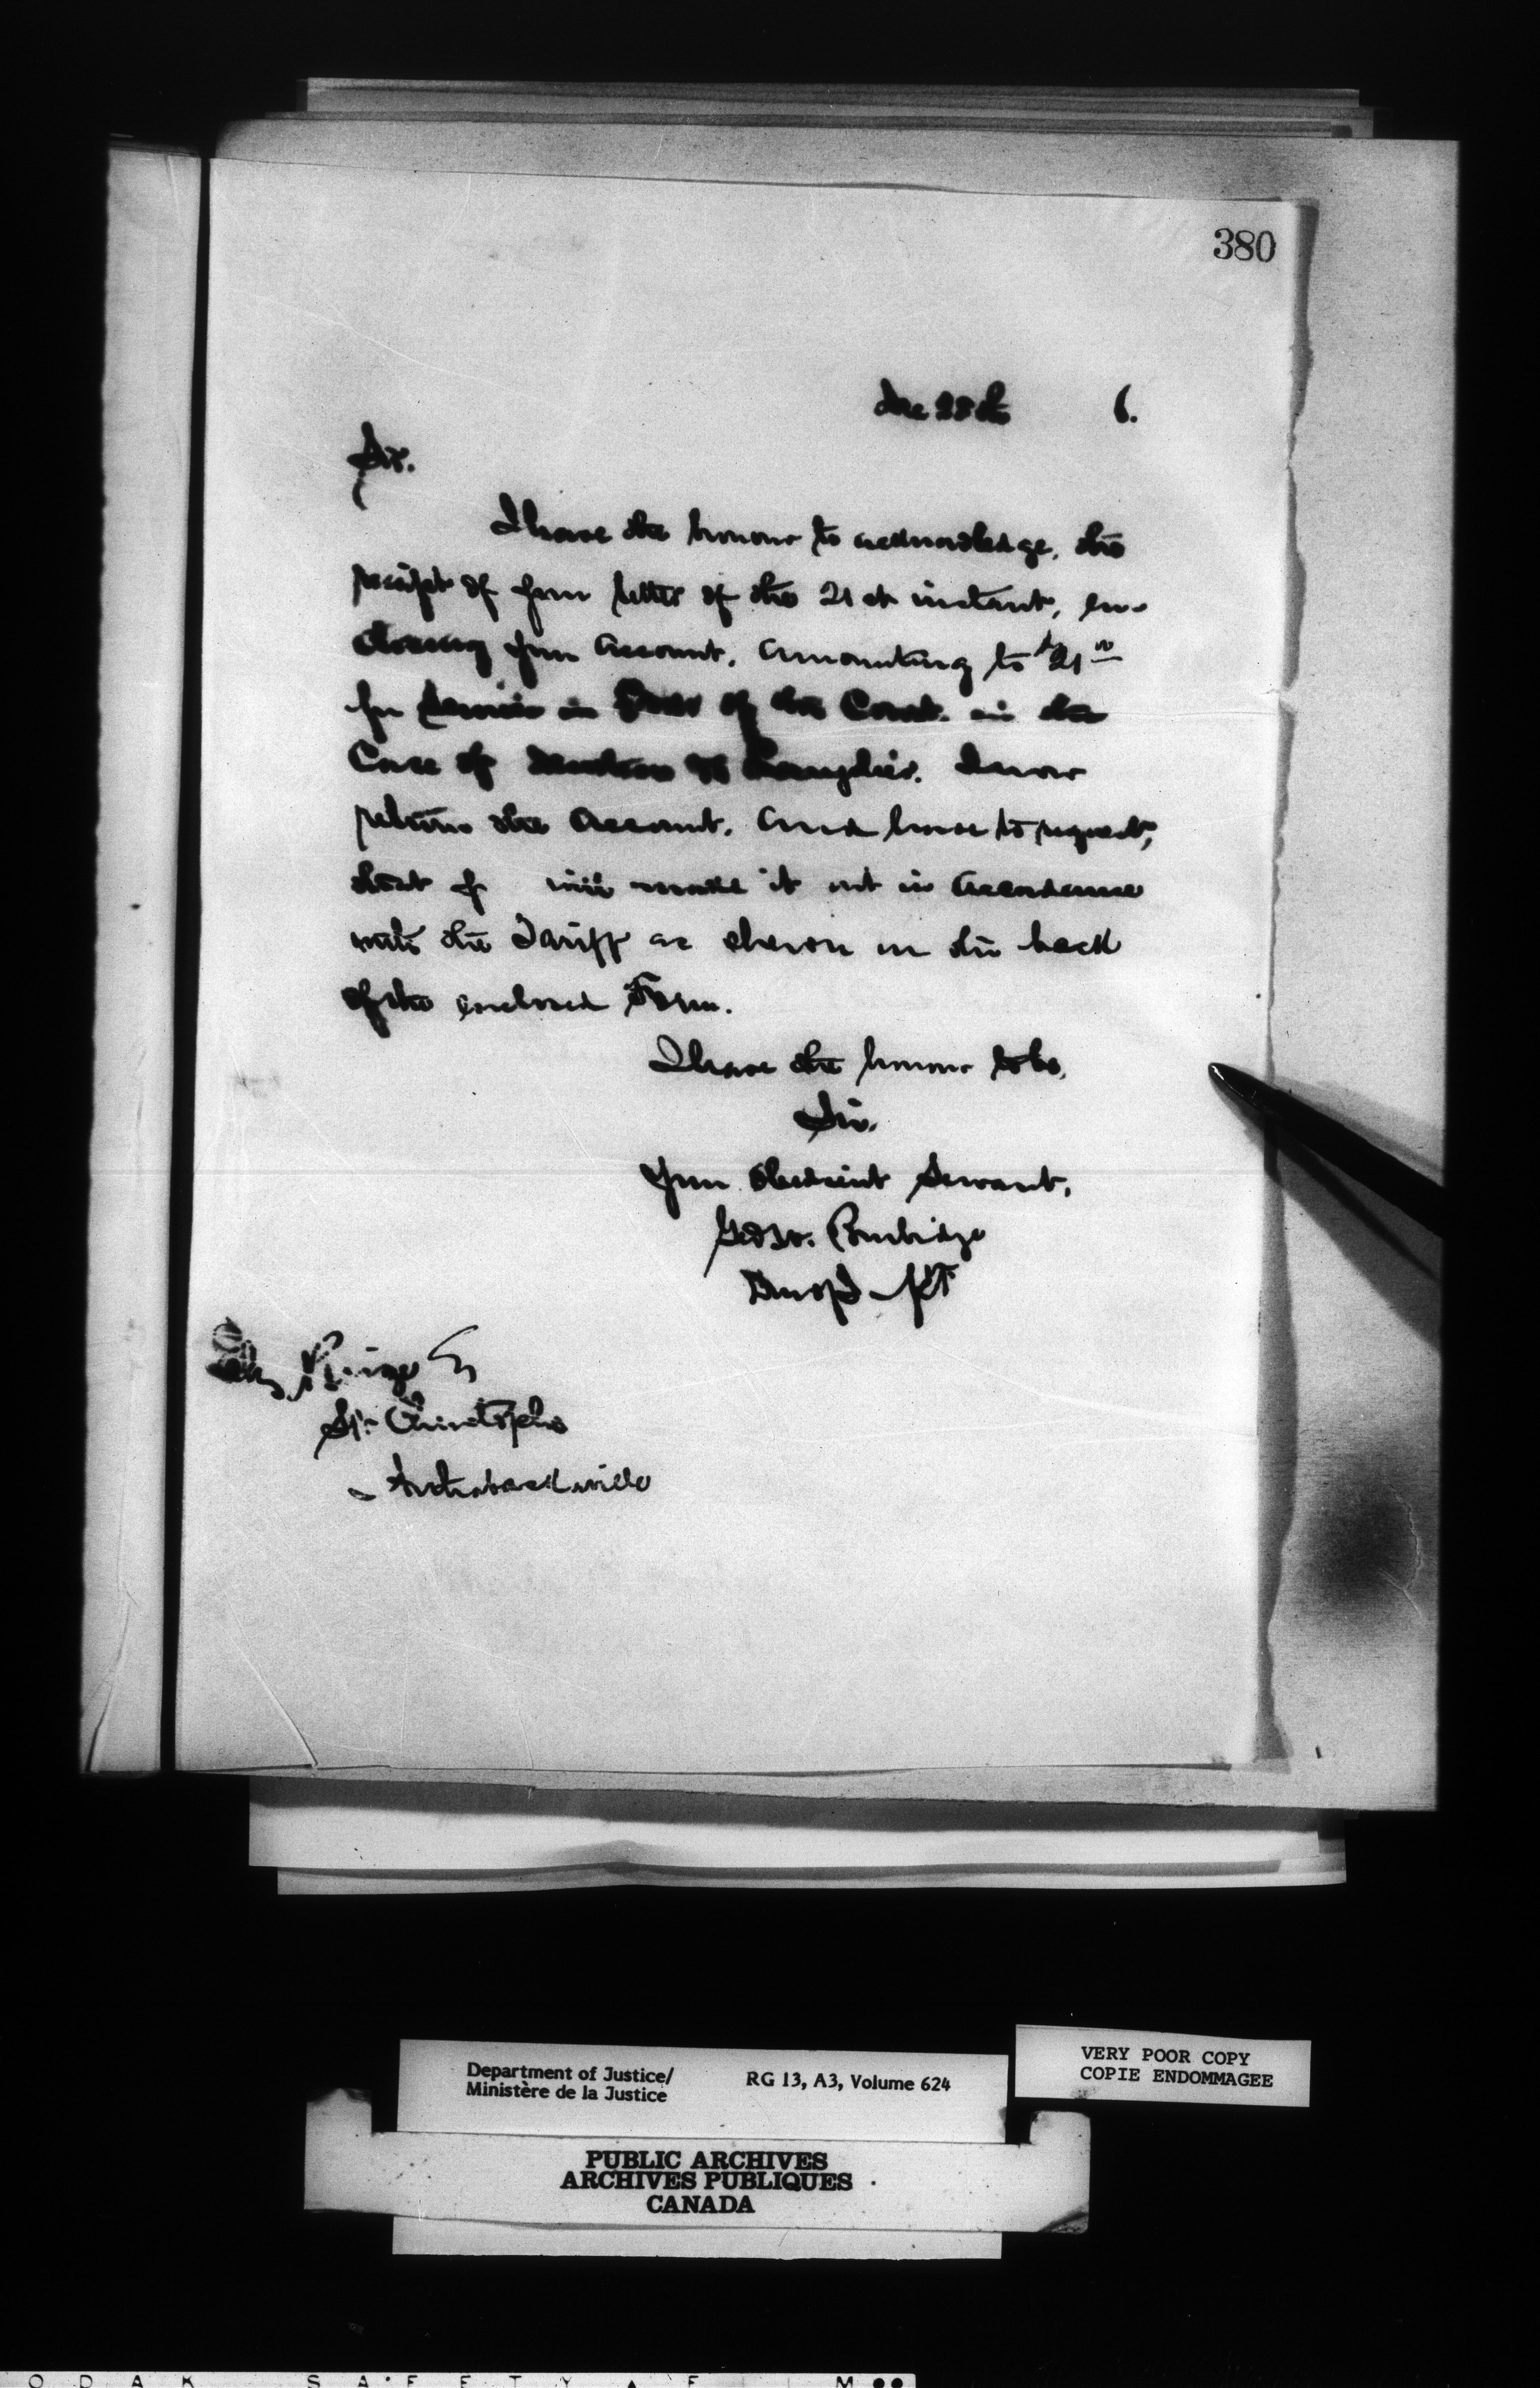 380
Dec 28th 6.
Sir.
I have the honour to acknowledge, the
receipt of your letter of the 21st instant, en-
closing your Account. Amounting to $21 00
for Services in of the Court. in the
Case of I now
return the Account. And have to request,
that y will make it out in Accordance
with the Tariff as shewn on the back
of the enclosed Form.
I have the honour to be,
Sir.
Your Obedient Servant,
Geo W. Burbidge
D M of J
St Christophe
- Arthabaskaville
Department of Justice/
Ministère de la Justice
RG 13, A3, Volume 624
VERY POOR COPY
COPIE ENDOMMAGEE
PUBLIC ARCHIVES
ARCHIVES PUBLIQUES
CANADA
O D A K S A F E T Y F I L M